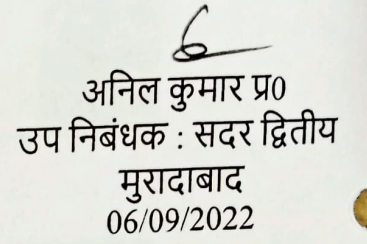 अनिल कुमार प्र0
उप निबंधक : सदर द्वितीय
मुरादाबाद
06/09/2022